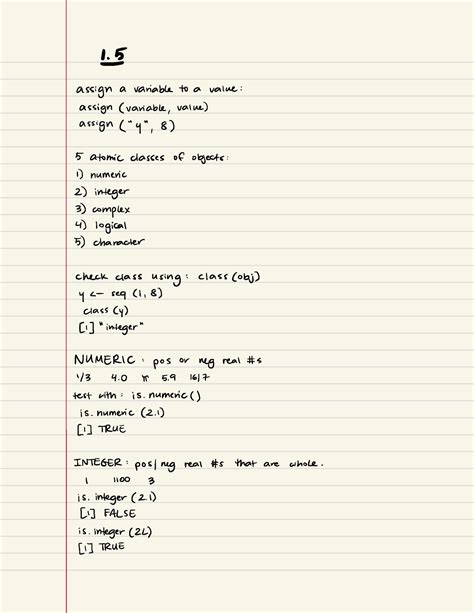 1.5
assign a variable to a value:
assign (variable, value)
assign ("y", 8)
5 atomic classes of objects:
1) numeric
2) integer
3) complex
4) logical
5) character
check class using: class(obj)
y <- seq (1, 8)
class (y)
[1] "integer"
NUMERIC: pos or neg real #s
1/3 4.0 π 5.9 16/7
test with: is.numeric()
is.numeric (2.1)
[1] TRUE
INTEGER: pos/neg real #s that are whole.
1 1100 3
is.integer (2.1)
[1] FALSE
is.integer (2L)
[1] TRUE